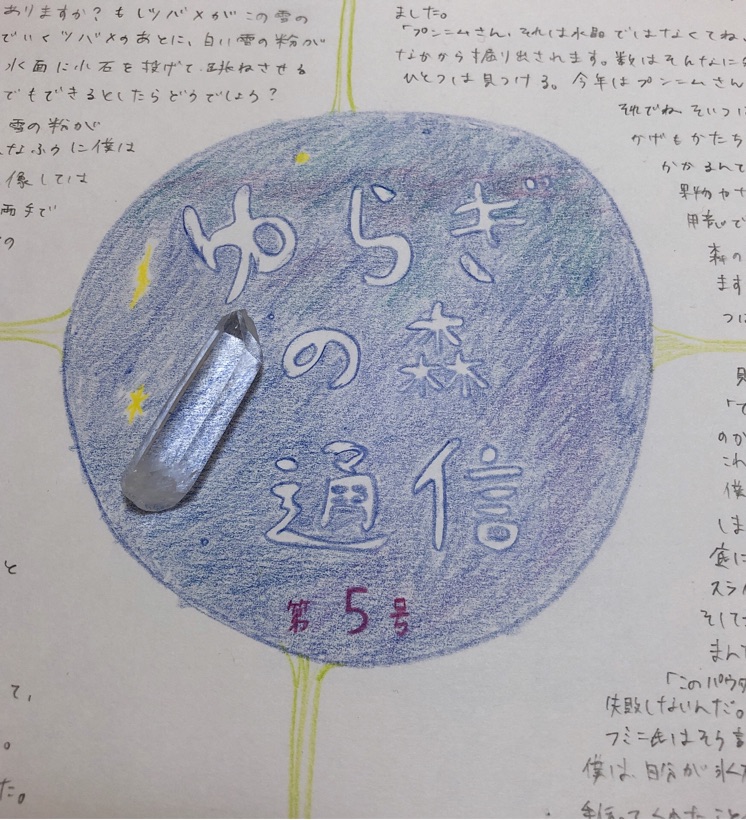 ありますか？もしツバメがこの雪の
でいくツバメのあとに、白い雪の粉が
水面に小石を投げて 跳ねさせる
でもできるとしたらどうでしょう？
雪の粉が
なふうに僕は
像しては
両手で
の
と
て、
。
た。
ゆらぎ
の 森
通信
第5号
ました。
「プンニムさん、それは水晶ではなくてね、
なかから掘り出されます。数はそんなに
ひとつは見つける。今年はプンニムさん
それでね そいつに
かげもかたち
かかるんで
果物や
用意して
森の
ます
つに
見
「て
のか
これ
僕
しま
庭に
スラ
そして
まんて
「このパウダ
失敗しないんだ。
フミニ氏はそう言
僕は、自分が氷
手伝ってくれたこと